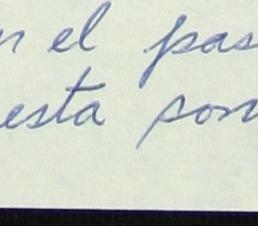 n el pas
esta son